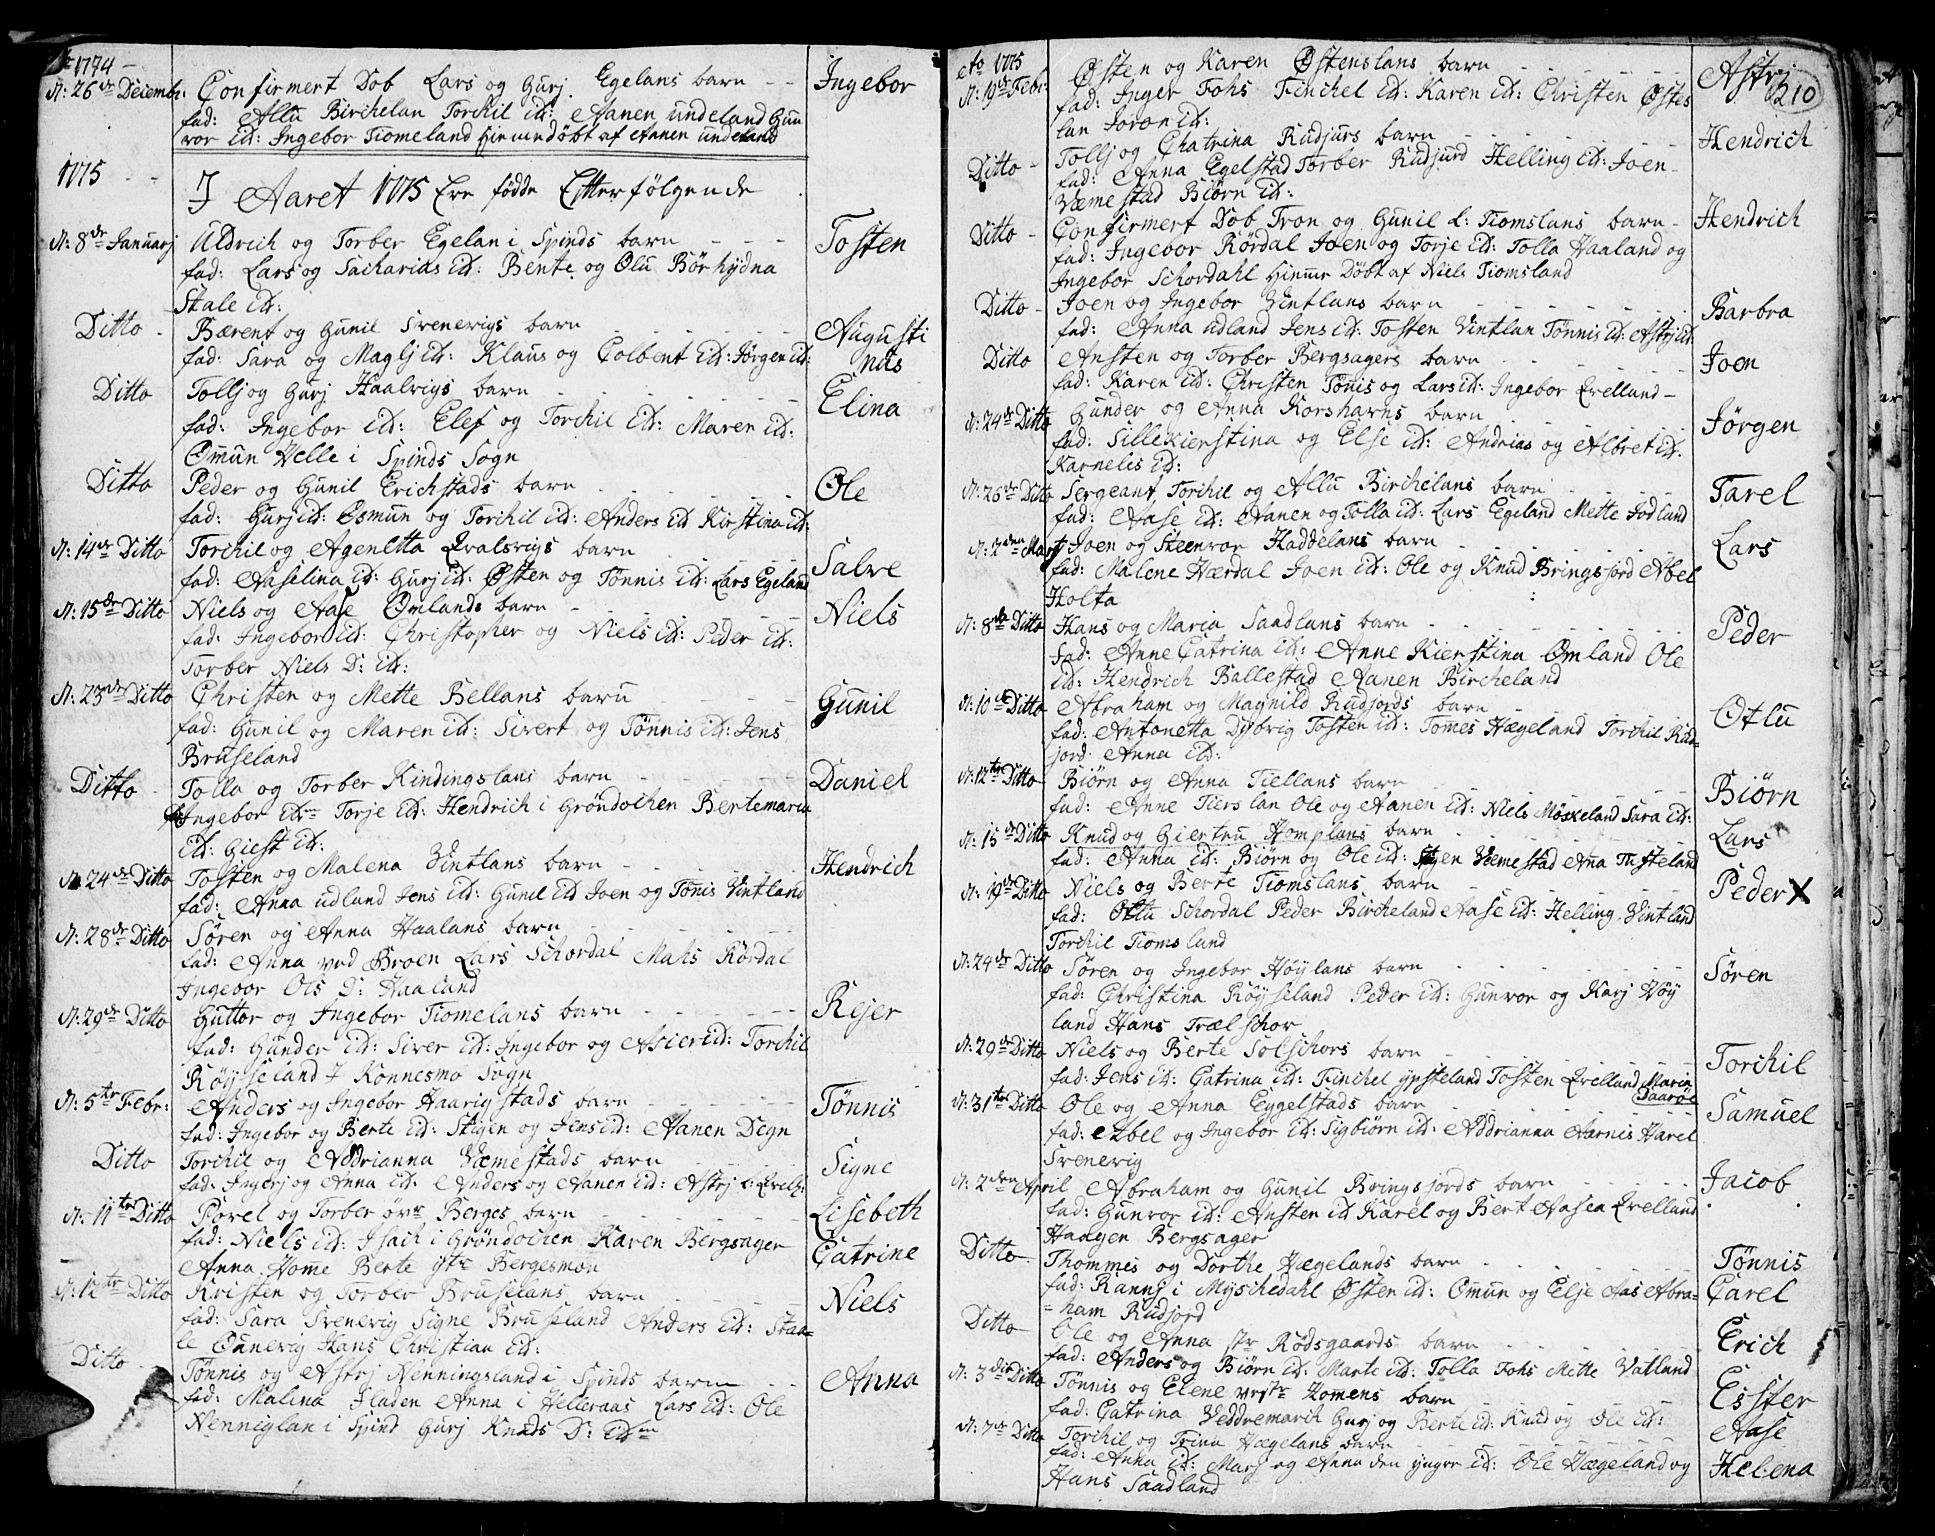 Ao 1774
N: 26de Decembr: Confirmert Dob Lars og Gurj Egelans barn - - Ingebor
fad: Allu Birchelan Torchil id: Aanen undeland Gun
vor id: Ingebor Tiomeland hiemedöbt af Aanen undeland
1775 - - I Aaret 1775 Ere födde Efterfölgende
N: 8de Januarj Uldrich og Torber Egelan i Spinds barn - - - Tosten
fad: Lars og Sacharias id: Bente og Olu Börhydna
Stale id:
Ditto - Bærent og Gunil Svenevigs barn - - - Augusti
fad: Sara og Maglj id: Klaus og Colbent id: Jörgen id: nus
Ditto Tollj og Gurj Haalvigs barn - - - Elina
fad: Ingebor id: Elef og Torchil id: Maren id:
Omun Velle i Spinds Sogn
Ditto Peder og Gunil Erichstads barn - - - Ole
fad: Gurj id: Osmun og Torchil id: Anders id Kirstina id:
N: 14de Ditto Torchil og Agenetta Qvalsvigs barn - - - Salve
fad: Aaselina id: Gurj id: Østen og Tönnis id: Lars Egeland
N: 15de Ditto Niels og Aase Omlands barn - - - Niels
fad: Ingebor id: Christopher og Niels id: Peder id:
Torber Niels D: id:
N: 23de Ditto Christen og Mette Bellans barn - - - Gunil
fad: Gunil og Maren id: Sivert og Tönnis id: Jens
Bruseland
Ditto - Tolla og Torber Kindingslans barn - - - Daniel
fad: Ingebor idm Torje id: Hendrich i Gröndochen Bertemaria
id: Giest id:
N: 24de Ditto Tosten og Malena Vintlans barn - Hendrich
fad: Anna udland Jens id: Gunil id Joen og Tönis Vintland
N: 28de Ditto Sören og Anna Haalans barn - - -
fad: Anna ved Broen Lars Schordal Mahs Rördal
Ingebor Ols D: Haalund
N: 29de Ditto Guttor og Ingebor Tiomelans barn - - - Rejer
fad: Gunder id: Siver id: Ingebor og Asier id: Torchil
Röysseland I Konnesmo Sogn
N: 5te Febr: Anders og Ingebor Haarigstads barn - - - Tönnis
fad: Ingebor og Berte id: Stigen og Jens id: Aanen Degn
Ditto Torchil og Addrianna Væmestads barn - - - Signe
fad: Ingerj og Anna id: Anders og Aanen id: Astrj
N: 11te Ditto Porel og Torber övre Berges barn - - - Lisebeth
fad: Niels id: Isach i Gröndochen Karen Bergsager Catrine
Anna Home Berte yste Bergesmon
N: 12te Ditto Kristen og Torber Bruselans barn - - - Niels
fad: Sara Svenevig Signe Bruseland Anders id: Staa-
le Ounevig Hans Christian id:
Ditto - Tönnis og Astrj Nenningsland i Spinds barn - - Anna
fad: Malina Fladen Anna i Helleraas Lars id: Ole
Nenniglan i Spind Gurj Knuds D: idm
Ao 1775 210
N: 19de Febr: Østen og Karen Østenslans barn - - - Astrj
fad: Inger Fohs Finchel id: Karen id: Christen Östes
lan Joron id:
Ditto - Tollj og Chatrina Rudjurs barn - - - Hendrich
fad: Anna Egelstad Torber Rudjurd Helling id: Joen
Væmestad Biörn id:
Ditto - Confirmert Dob Tron og Gunil L: Tiomslans barn - Hendrich
fad: Ingebor Rördal Joen og Torje id: Tolla Haaland og
Ingebor Schordahl hiemme Döbt af Niels Tiomsland
Ditto - Joen og Ingebor Vintlans barn - - - Barbra
fad: Anna udland Jens id: Tosten Vintlan Tönnis id: Astrj id
Ditto Ansten og Torber Bergsagers barn - - - Joen
fad: Karen id: Christen Tönis og Lars id: Ingebor Qvelland -
N: 24de Ditto Gunder og Anna Korshavns barn - - - Jörgen
fad: Sillekierstina og Else id: Andrias og Albret id:
Karneles id:
N: 26de Ditto Sergeant Torchil og Allu Birchelans barn - - - Tarel
fad: Aase id: Aanen og Tolla id: Lars Egeland Mette Jodland
N: 2den Marty Joen og Steenvor Haddelans barn - - - Lars
fad: Malene Hærdal Joen id: Ole og Knud Bringsjord Abel
Holta
N: 8de Ditto Hans og Maria Saadlans barn - - - Peder
fad: Anne Catrina id: Anne Kierstina Omland Ole
id: Hendrich Ballestad Aanen Bircheland
N: 10de Ditto Abraham og Magnild Rudjords barn - - - Otlu
fad: Antonetta Dybvig Tosten id: Tomes Hægeland Torchil Rud-
jord Anna id:
N: 12te Ditto Biörn og Anna Tiellans barn - - - Biörn
fad: Anne Tierslan Ole og Aanen id: Niels Möskeland Sara id:
N: 15de Ditto Knud og Giertru Homplans barn - - - Lars
fad: Anna id: Biörn og Ole id: Stigen Væmestad Ana Thysteland
N: 19de Ditto Niels og Berte Tiomslans barn - - - Peder X
fad: Otlu Schordal Peder Bircheland Aase id: Helling Vintland
Torchil Tiomsland
N: 24de Ditto Sören og Ingebor Höylans barn - - - Sören
fad: Christina Röysseland Peder id: Gunvor og Karj Höy
land Hans Trælschor
N: 29de Ditto Niels og Berte Solschors barn - - - Torchil
fad: Jens id: Catrina id: Finchel ypsteland Tosten Qvelland Marin
Saaröe
N: 31te Ditto Ole og Anna Eygelstads barn - - - Samuel
fad: Abel og Ingebor id: Sigbiörn id: Addrianna Aarnis Harel
Svenevig
N: 2den April Abraham og Gunil Bringsjords barn - - - Jacob
fad: Gunvor id: Ansten id Karel og Bert Aasea Qvelland
Haagen Bergsager
Ditto - Thommes og Dorthe Hægelands barn - - - Tönnis
fad: Rannj i Myschedahl Østen id: Omun og Elje Aas Abra- Carel
=ham Rudjord
Ditto - Ole og Anna Rödsgaards barn - - - Erich
fad: Anders og Biörn id: Marte id: Tolla Fohs Mette Vatland
N: 3die Ditto Tönnis og Elene vestre Homens barn - - - Esster
fad: Catrina Veddremarch Gurj og Berte id: Knud og Ole id:
N: 7de Ditto Torchil og Trina Hægelans barn - - - Aase
fad: Anna id: Marj og Anna den yngre id: Ole Hægeland og Helena
Hans Saadland